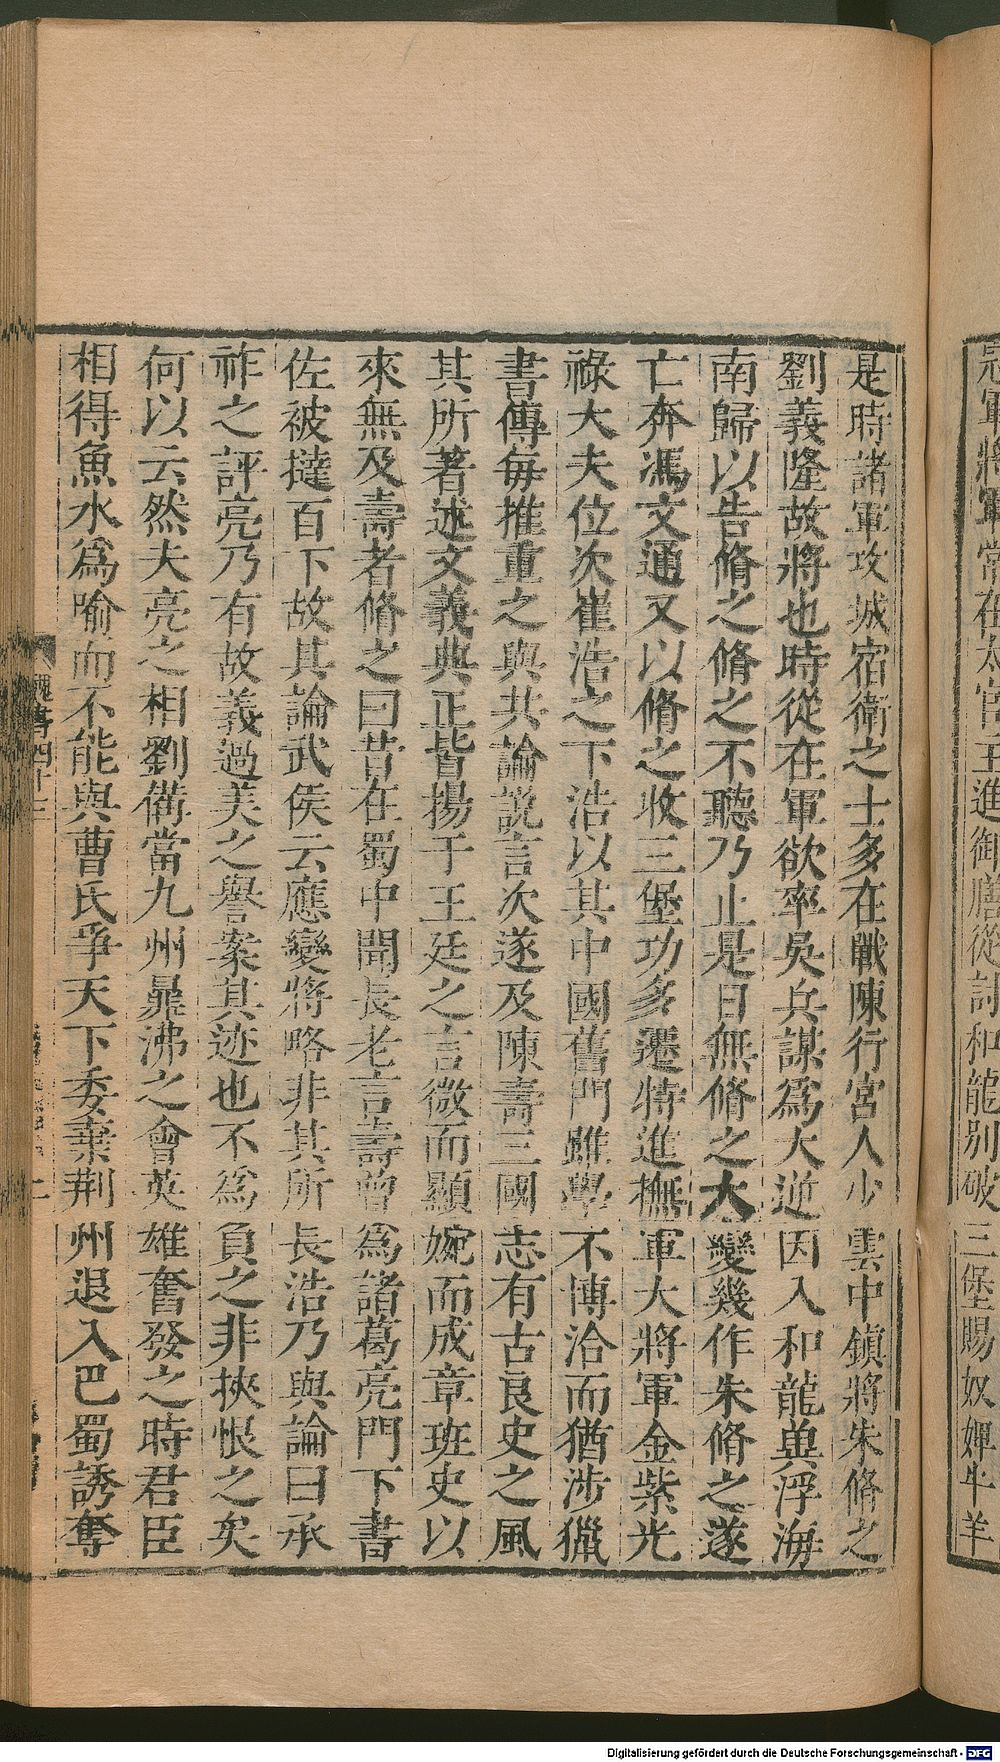 冦軍將軍常在太官主進御膳從討和龍別破三堡賜奴婢牛羊
是時諸軍攻城宿衛之士多在戰陳行宮人少雲中鎮將朱脩之
劉義隆故將也時從在軍欲率吳兵謀爲大逆因入和龍兾浮海
南歸以告脩之脩之不聽乃止是日無脩之大變幾作朱脩之遂
亡奔馮文通又以脩之收三堡功多遷特進撫軍大將軍金紫光
祿大夫位次崔浩之下浩以其中國舊門雖學不博洽而猶涉獵
書傳每推重之與共論說言次遂及陳壽三國志有古良史之風
其所著述文義典正皆揚于王廷之言微而顯婉而成章班史以
來無及壽者脩之曰昔在蜀中聞長老言壽曾爲諸葛亮門下書
佐被撻百下故其論武侯云應變將略非其所長浩乃與論曰承
祚之評亮乃有故義過美之譽案其迹也不爲負之非挾恨之矣
何以云然夫亮之相劉備當九州鼎沸之會英雄奮發之時君臣
相得魚水爲喻而不能與曹氏爭天下委棄荆州退入巴蜀誘奪
魏書四十三
二
Digitalisierung gefördert durch die Deutsche Forschungsgemeinschaft - DFG